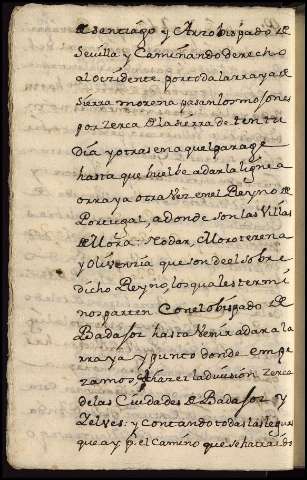 de santiago y Arzobispado de
Sevilla y Caminando derecho
al ocidente por toda la rraya de
sierra morena pasan los mojones
por zerca de la sierra de tentu
dia y otras en aquel parage
hasta que buelbe a dar la ligne a
o rraya otra vez en el Reyno de
Portugal, adonde son las Villas
de Mora: Nodar, Moro
y Olivenzia que son de el sobre
dicho Reyno, los quales termi
nos parten Con el obispado de
Badajoz hasta Venir a dar a la
rraya y punto donde empe
zamos a hazer la division zerca
de las Ciudades de Badajoz y
Yelves: y contando todas las leguas
que ay por el Camino que se ha traido